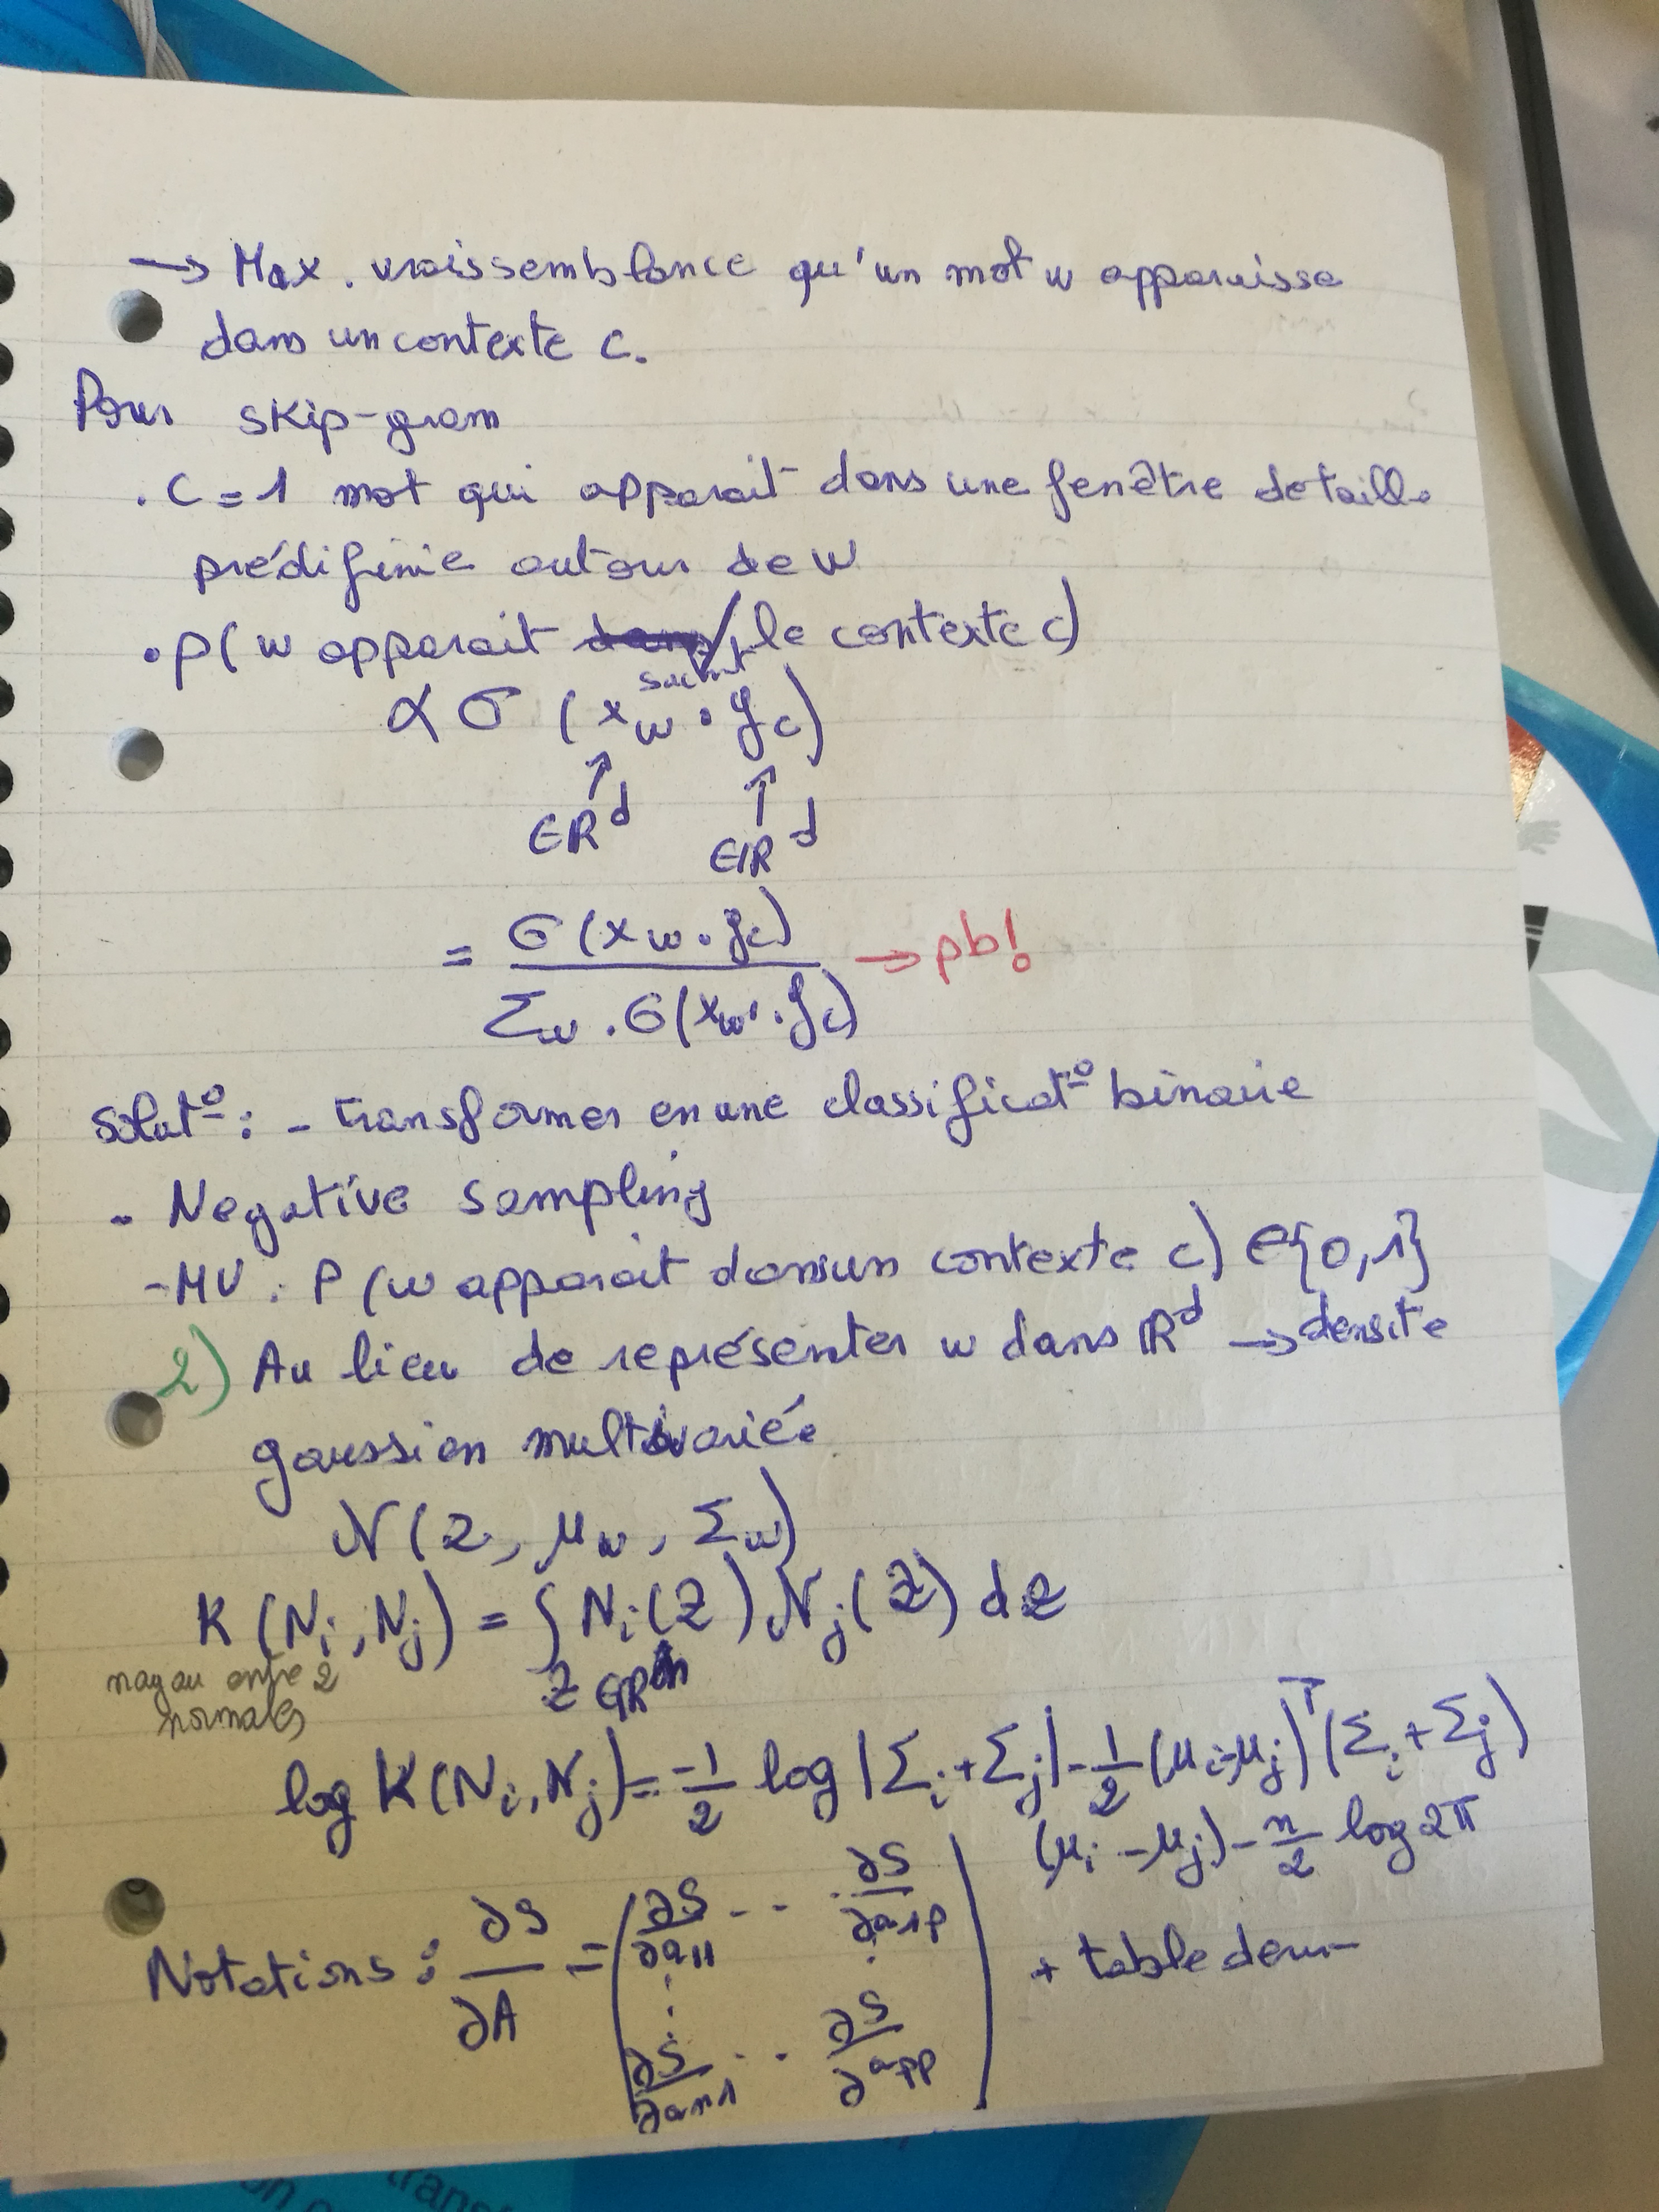 → Max. vraissemblance qu'un mot w apparaisse
dans un contexte c.
Pour skip-gram
. C = 1 mot qui apparait dans une fenêtre de taille
prédifinie autour de w
• p( w apparait sachant le contexte c)
∝ σ (x_w • y_c)
∈ℝ^d ∈ℝ^d
= σ(x_w • y_c) / Σ_w' . σ(x_w' . y_c) → pb!
Solut°: - transformer en une classificat° binaire
- Negative sampling
- MV : P (w apparait dans un contexte c) ∈ {0,1}
2) Au lieu de représenter w dans ℝ^d → densité
gaussien multivarié
N(z, μ_w, Σ_w)
K (N_i, N_j) = ∫ N_i(z) N_j(z) dz
noyau entre 2 z ∈ ℝ^n
normales
log K(N_i, N_j) = -1/2 log |Σ_i + Σ_j| - 1/2 (μ_i - μ_j)^T (Σ_i + Σ_j)
(μ_i - μ_j) - n/2 log 2π
Notations : ∂S/∂A = ( ∂S/∂a_11 -- ∂S/∂a_1p
∂S/∂a_n1 -- ∂S/∂a_pp ) + table